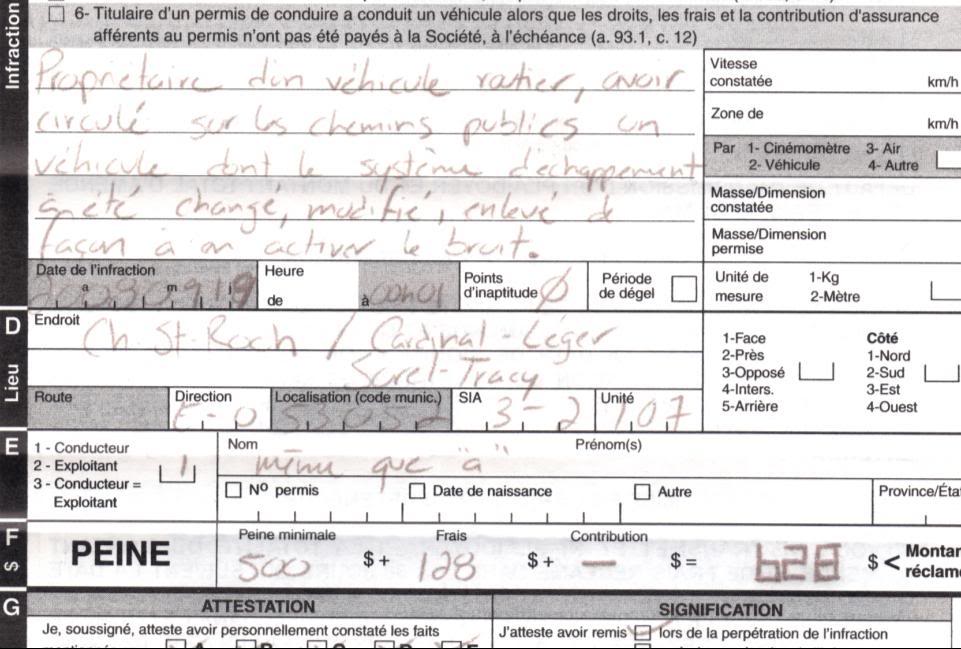 Infraction
6- Titulaire d'un permis de conduire a conduit un véhicule alors que les droits, les frais et la contribution d'assurance
afférents au permis n'ont pas été payés à la Société, à l'échéance (a. 93.1, c. 12)
Propriétaire d'un véhicule routier, avoir
circulé sur les chemins publics un
véhicule dont le système d'échappement
a été changé, modifié, enlevé de
façon à en activer le bruit.
Vitesse
constatée km/h
Zone de km/h
Par 1- Cinémomètre 3- Air
2- Véhicule 4- Autre
Masse/Dimension
constatée
Masse/Dimension
permise
Unité de 1-Kg
mesure 2-Mètre
Date de l'infraction a m j
20030919
Heure
de à 00h01
Points
d'inaptitude Ø
Période
de dégel
D
Lieu
Endroit
Ch St-Roch / Cardinal-Léger
Sorel-Tracy
Route
Direction
E-O
Localisation (code munic.)
53052
SIA
3-2
Unité
107
1-Face Côté
2-Près 1-Nord
3-Opposé 2-Sud
4-Inters. 3-Est
5-Arrière 4-Ouest
E
1 - Conducteur
2 - Exploitant 1
3 - Conducteur =
Exploitant
Nom Prénom(s)
même que "a"
Nº permis Date de naissance Autre
Province/Éta
F
$
PEINE
Peine minimale Frais Contribution
500 $ + 128 $ + — $ = 628 $ < Montan
réclamé
G
ATTESTATION
SIGNIFICATION
Je, soussigné, atteste avoir personnellement constaté les faits
J'atteste avoir remis lors de la perpétration de l'infraction